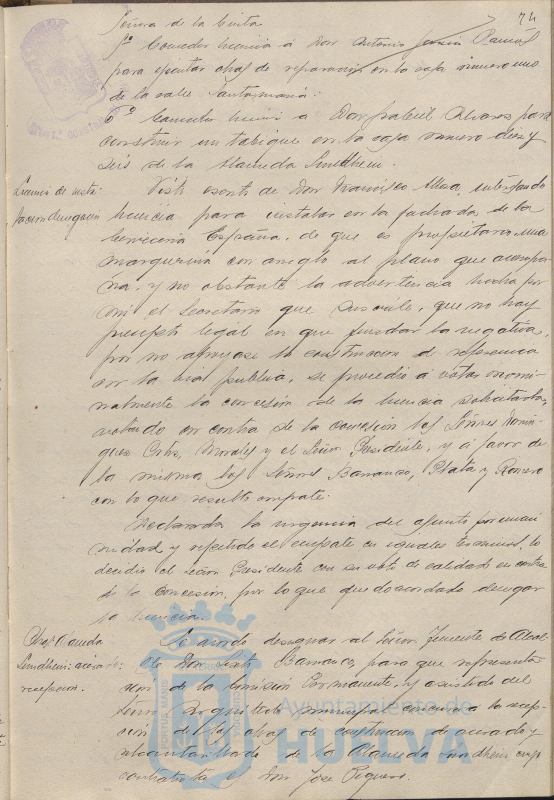 74
Señora de la Cinta
5º Conceder licencia a Don Antonio García Ramos
para ejecutar obras de reparación en la casa número uno
de la calle Santa María.
6º Conceder licencia a Don Gabriel Alvarez para
construir un tabique en la casa número diez y
seis de la Alameda Sundheim.
Licencia de insta-
lacion denegacion
Visto escrito de Don Francisco Mesa, interesando
licencia para instalar en la fachada de la
Cerveceria España, de que es propietario, una
marquesina con arreglo al plano que acompa-
ña, y no obstante la advertencia hecha por
mi el Secretario que suscribe, que no hay
precepto legal en que fundar la negativa,
por no apoyarse la construccion de referencia
en la via publica, se procedió a votar nomi-
nalmente la concesión de la licencia solicitada,
votando en contra de la concesion los Señores Domin-
guez Ortiz, Morales y el Señor Presidente, y a favor de
la misma los Señores Barranco, Plata y Romero
con lo que resultó empate.
Declarada la urgencia del asunto por unani-
midad y repetido el empate en iguales terminos, lo
decidio el señor Presidente con su voto de calidad en contra
de la concesion, por lo que quedo acordado denegar
la licencia.
Obras Alameda
Sundheim: acerado:
recepcion.
Se acordo designar al Señor Teniente de Alcal-
de Don José Barranco, para que representa-
cion de la Comisión Permanente, y asistido del
Señor Arquitecto municipal concurra a la recep-
cion de las obras de construccion de acerado y
alcantarillado de la Alameda Sundheim cuyo
contratista es Don Jose Piguero.
PORTUS MARIS
Ayuntamiento de
HUELVA